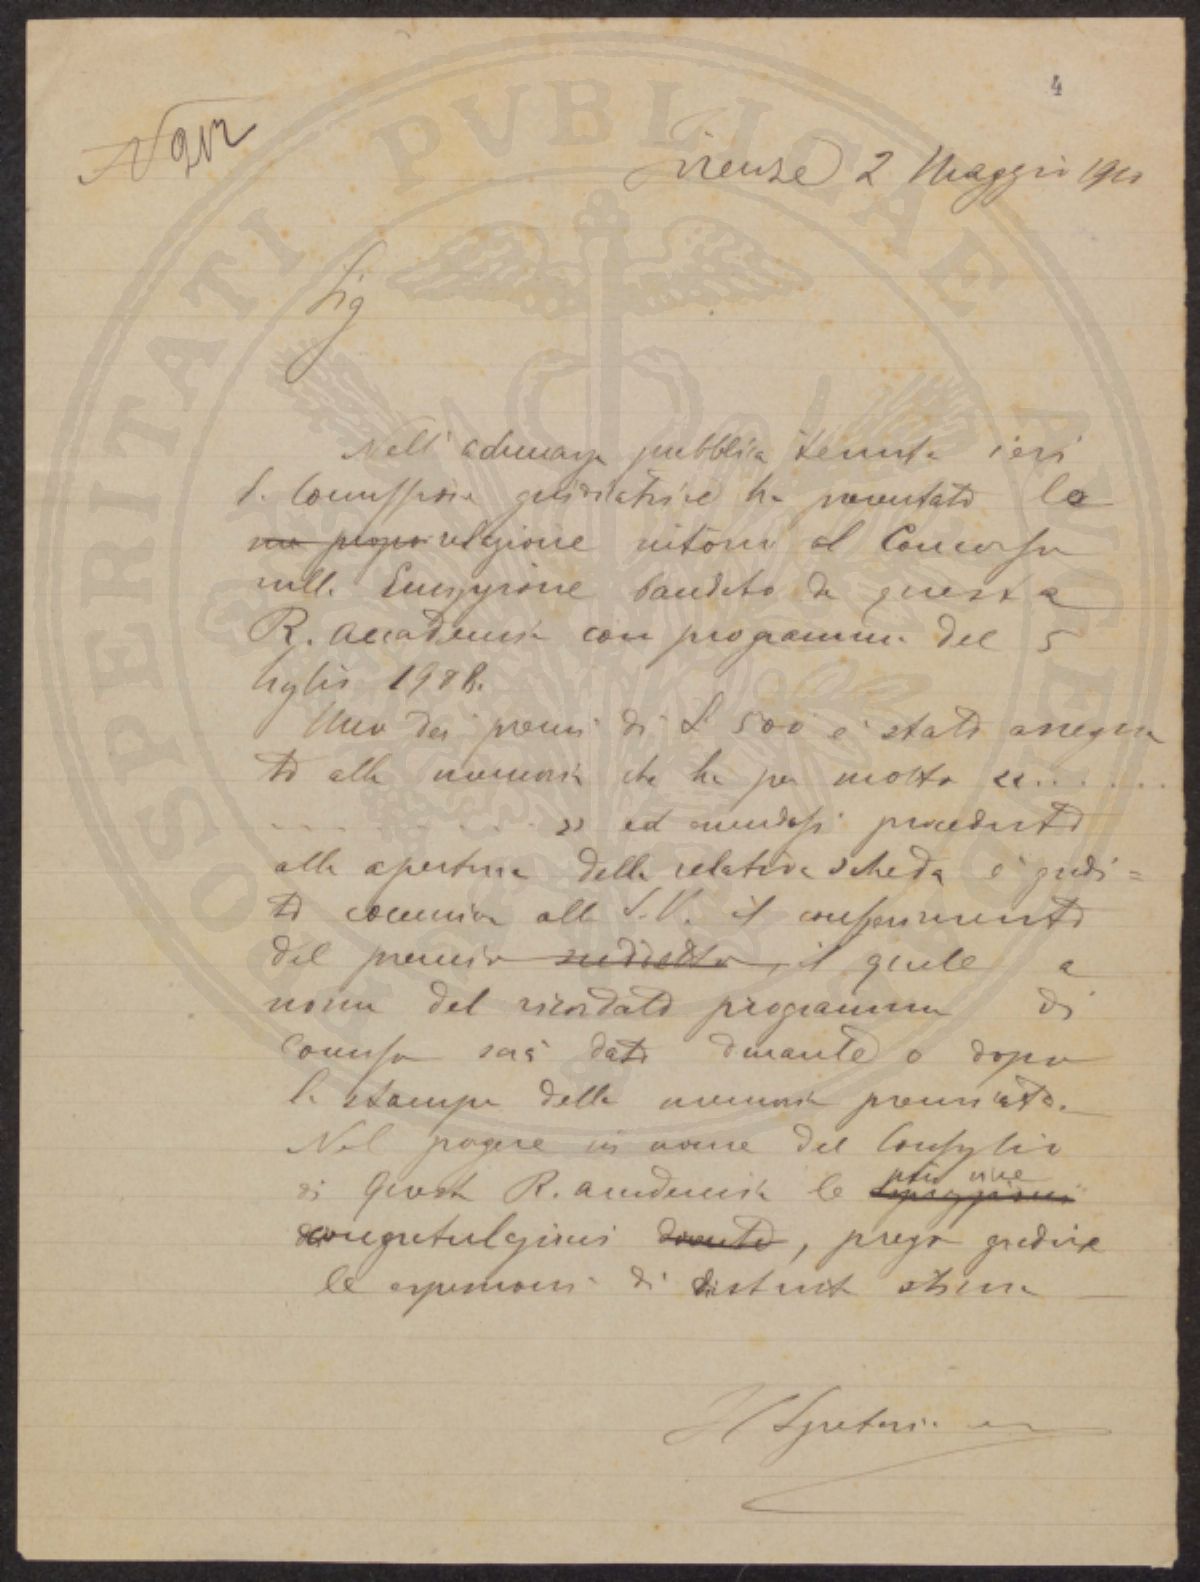 4
N 212
Firenze 2 Maggio 1910
Sig
Nell' adunanza pubblica tenuta ieri
la Commissione giudicatrice ha presentato la
sua propo relazione intorno al Concorso
sulla Emigrazione bandito da questa
R. Accademia con programma del 5
luglio 1908.
Uno dei premi di L 500 è stato assegna
to alla memoria che ha per motto "......
............" ed avendosi proceduto
alla apertura della relativa scheda è gradi=
to comunicar alla S.V. il conferimento
del premio suddetto, il quale a
norma del ricordato programma di
Concorso sarà dato durante o dopo
la stampa della memoria premiata.
Nel porgere in nome del Consiglio
di questa R. Accademia le più vive
congratulazioni dovute, prego gradire
le espressioni di distinta stima
Il Segretario
PROSPERITATI PVBLICAE AVGENDAE